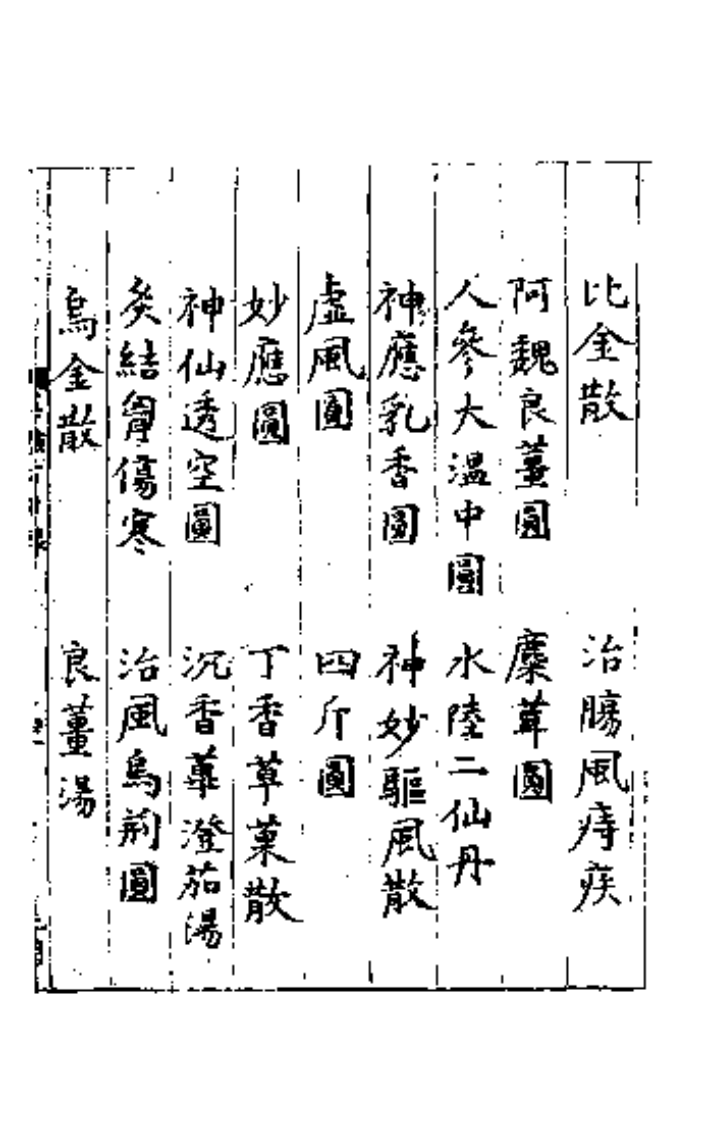 比金散　治腸風痔疾
阿魏良薑圓　麋茸圓
人參大溫中圓　水陸二仙丹
神應乳香圓　神妙驅風散
虛風圓　四斤圓
妙應圓　丁香草菓散
神仙透空圓　沉香蓽澄茄湯
矣結胷傷寒　治風烏荊圓
烏金散　良薑湯